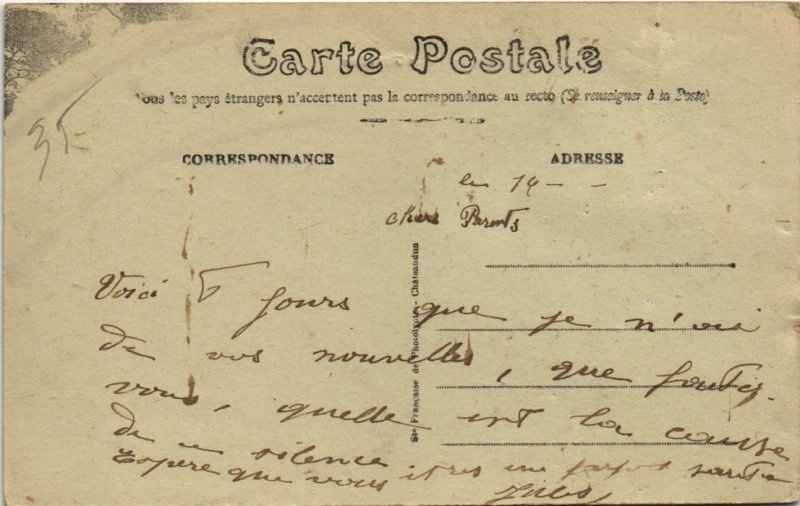 Carte Postale
Tous les pays étrangers n'acceptent pas la correspondance au recto (Se renseigner à la Poste)
35
CORRESPONDANCE
ADRESSE
le 14 - -
chers Parents
Voici 5 jours que je n'ai
de vos nouvelles, que faites
vous, quelle est la cause
de ce silence
Espère que vous êtes en santé
Jules
Sté Française de Phototypie - Châteaudun